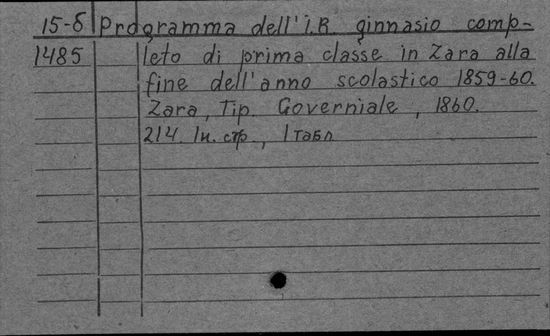 15-б Programma dell' i.R ginnasio comp-
1485 leto di prima classe in Zara alla
fine dell'anno scolastico 1859-60.
Zara, Tip. Governiale, 1860.
214. 1н. стр., 1 табл